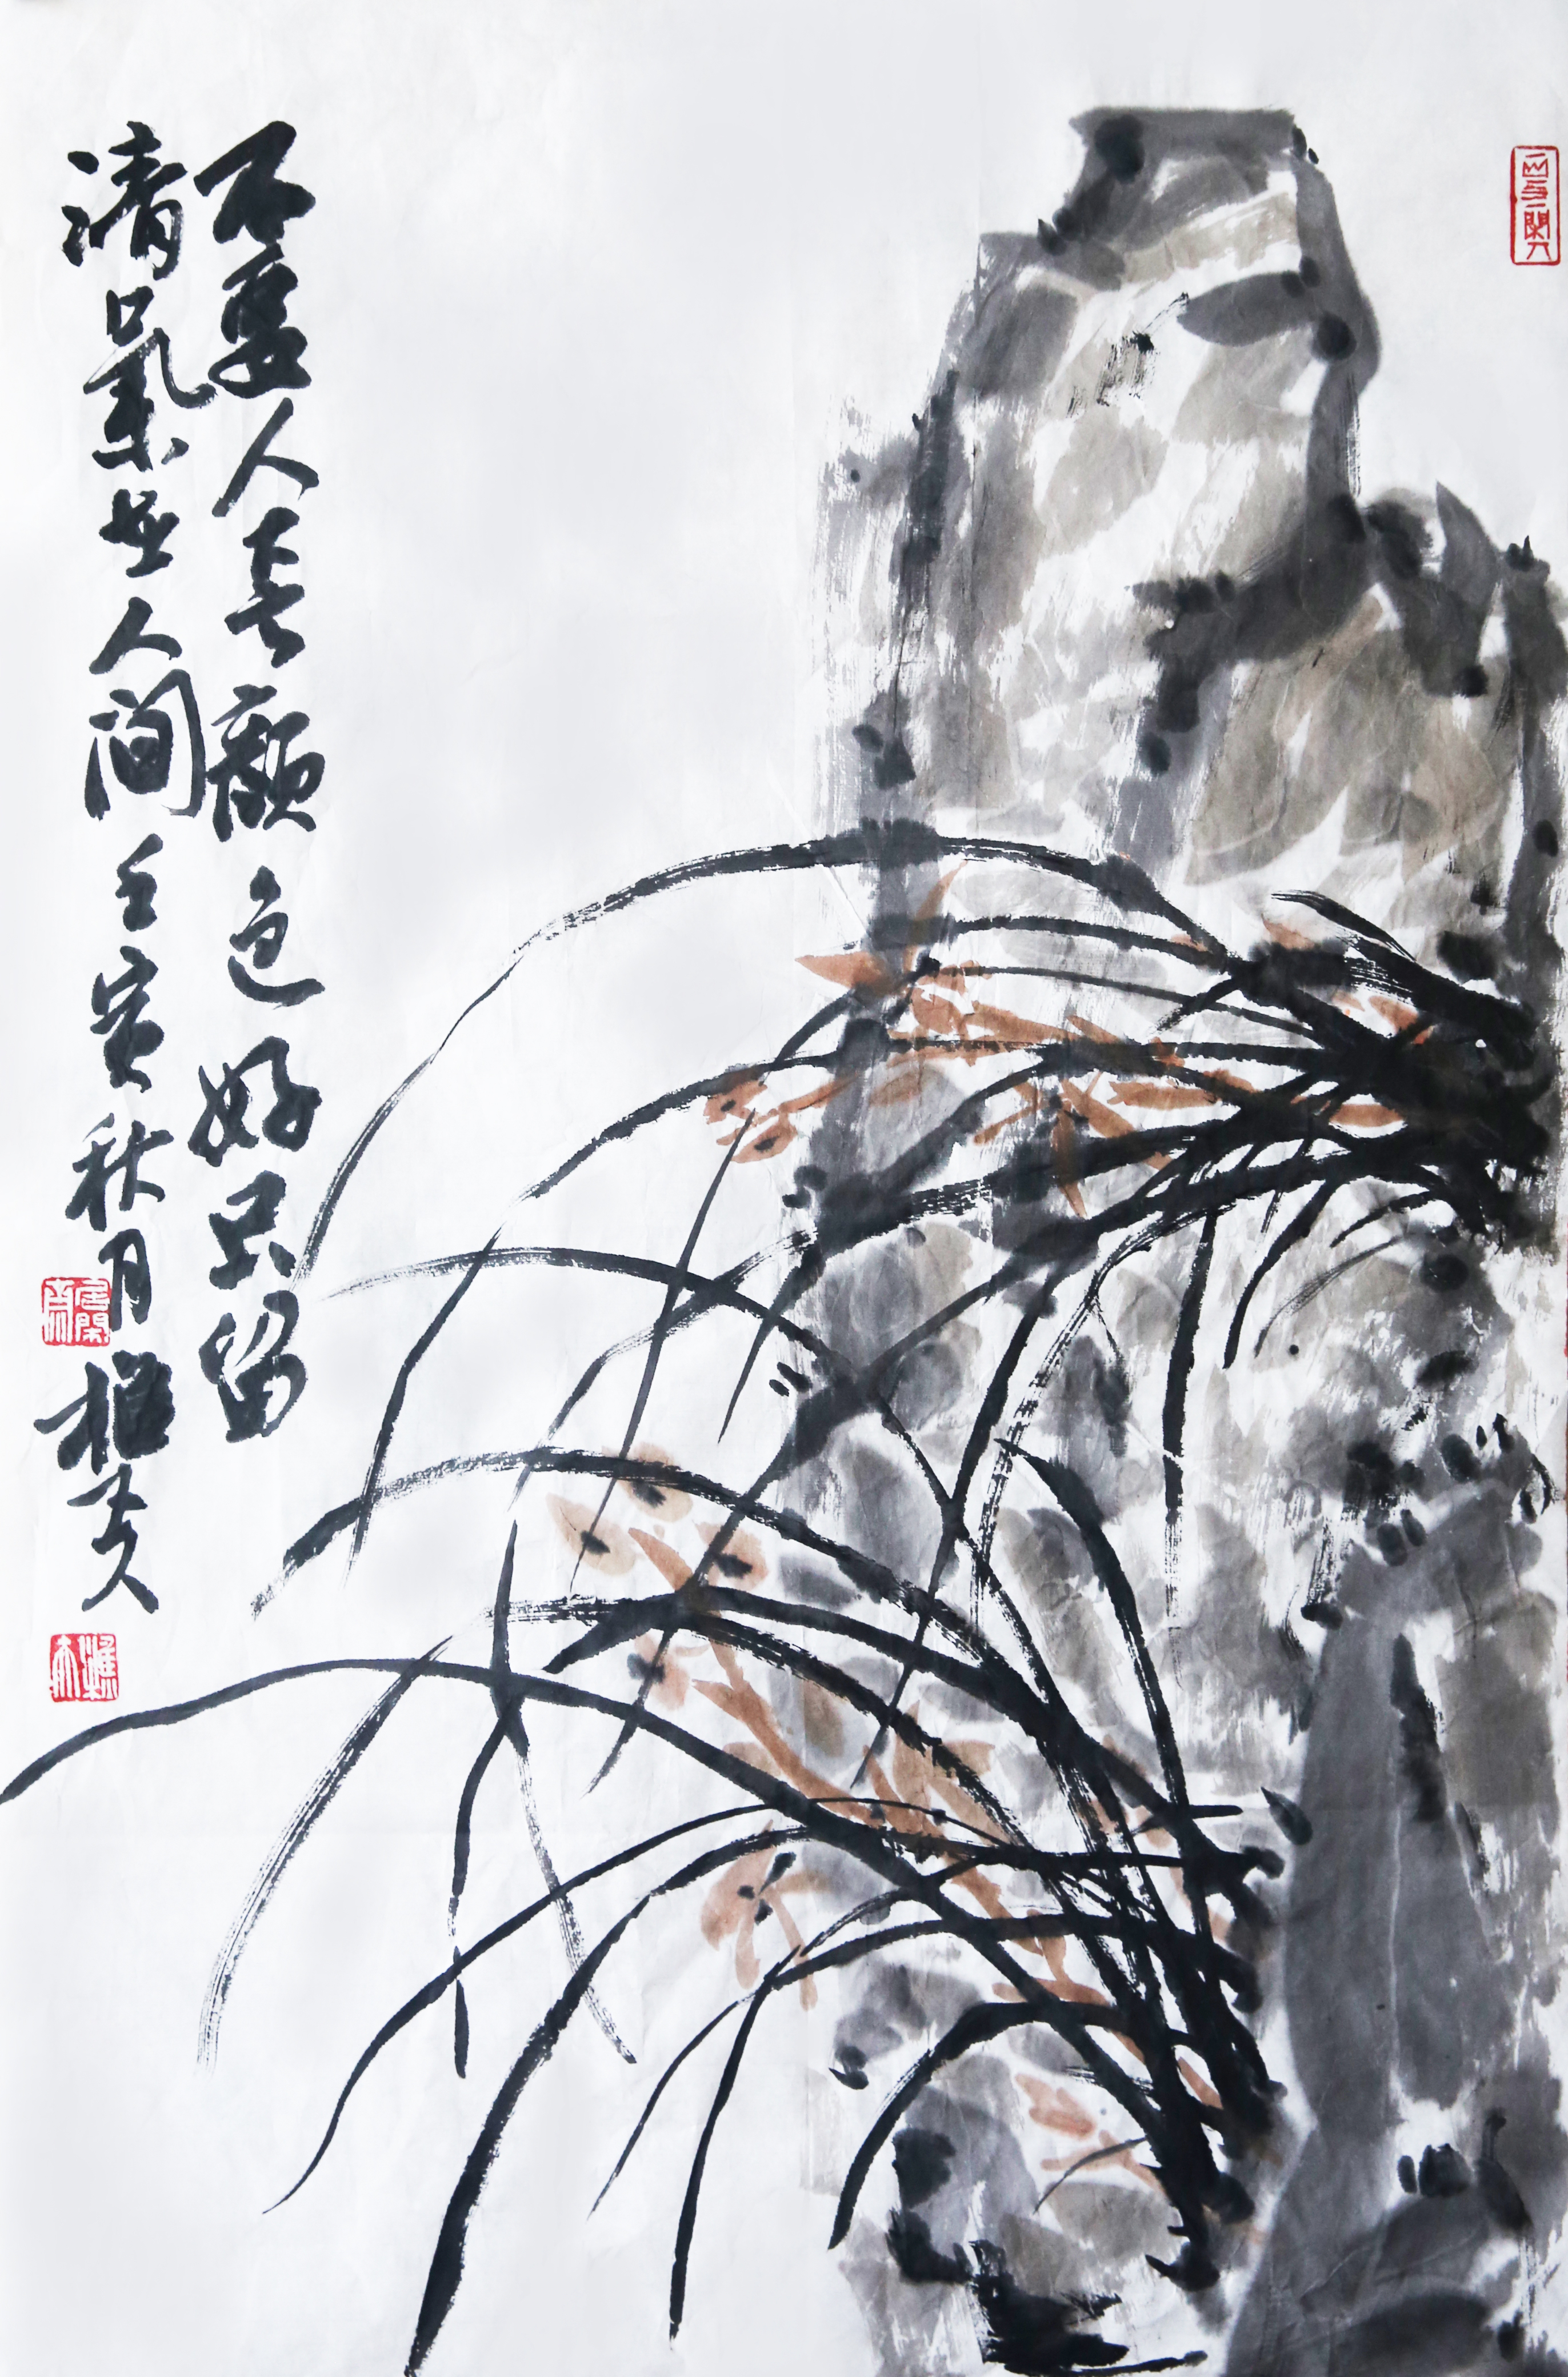 不要人夸顏色好只留
清氣人間壬寅秋月樵夫